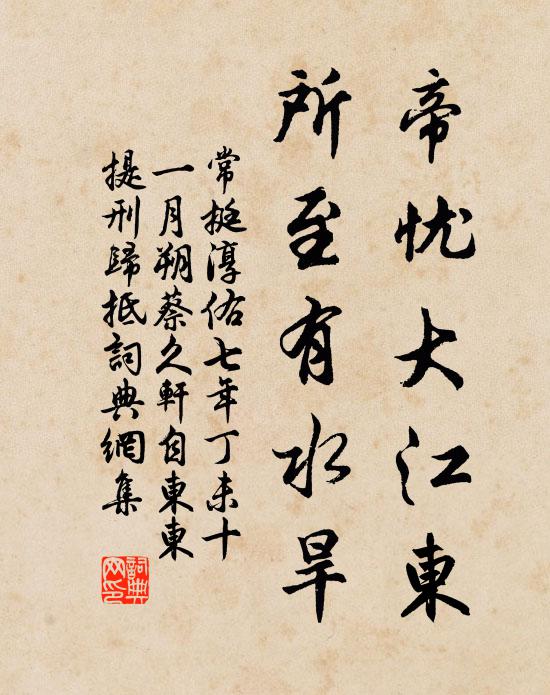 帝忧大江東
所至有水旱
常挺淳佑七年丁未十
一月朔蔡久軒自東東
提刑歸抵詞典網集
詞典
网印